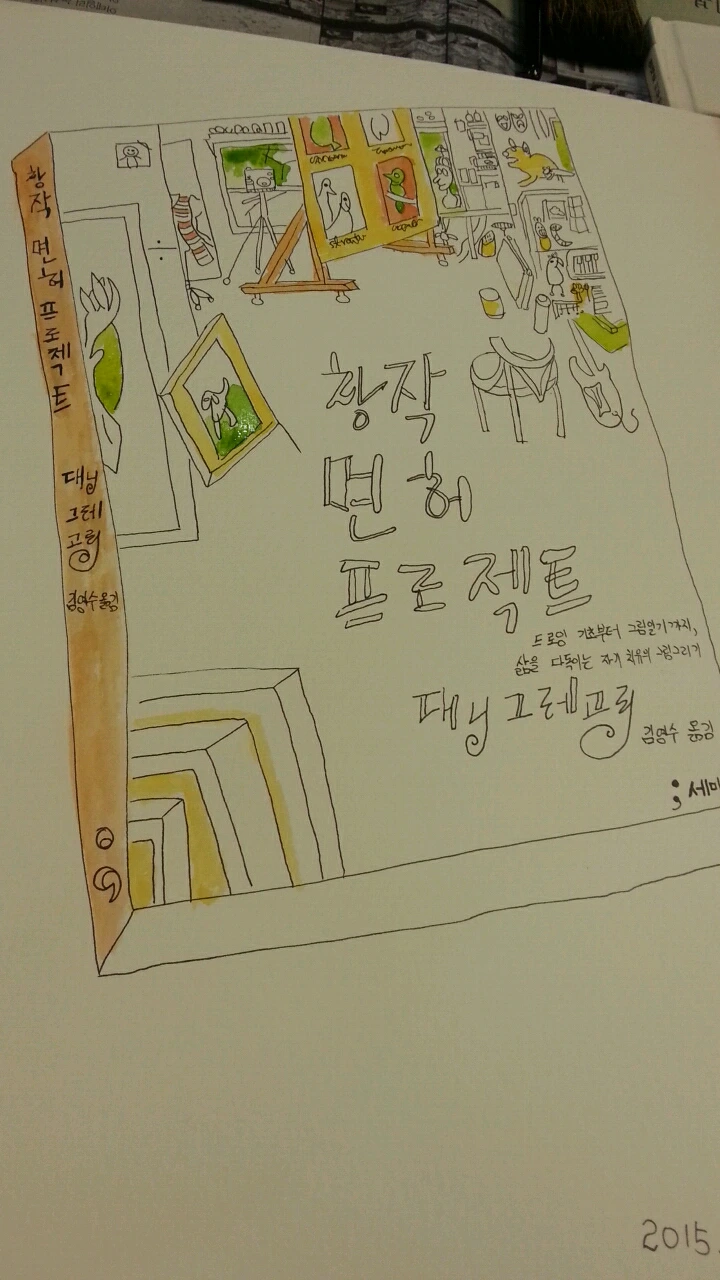 창작 면허 프로젝트 대니 그레고리 김영수 옮김
창작
면허
프로젝트
드로잉 기초부터 그림일기까지,
삶을 다독이는 자기 치유의 그림그리기
대니 그레고리
김영수 옮김
;세미
2015.